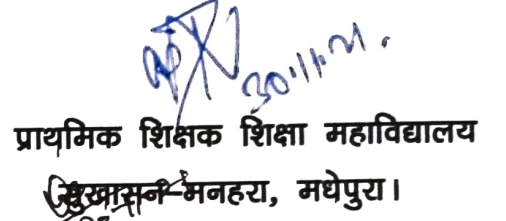 30.11.21.
प्राथमिक शिक्षक शिक्षा महाविद्यालय
सुखासन-मनहरा, मधेपुरा।